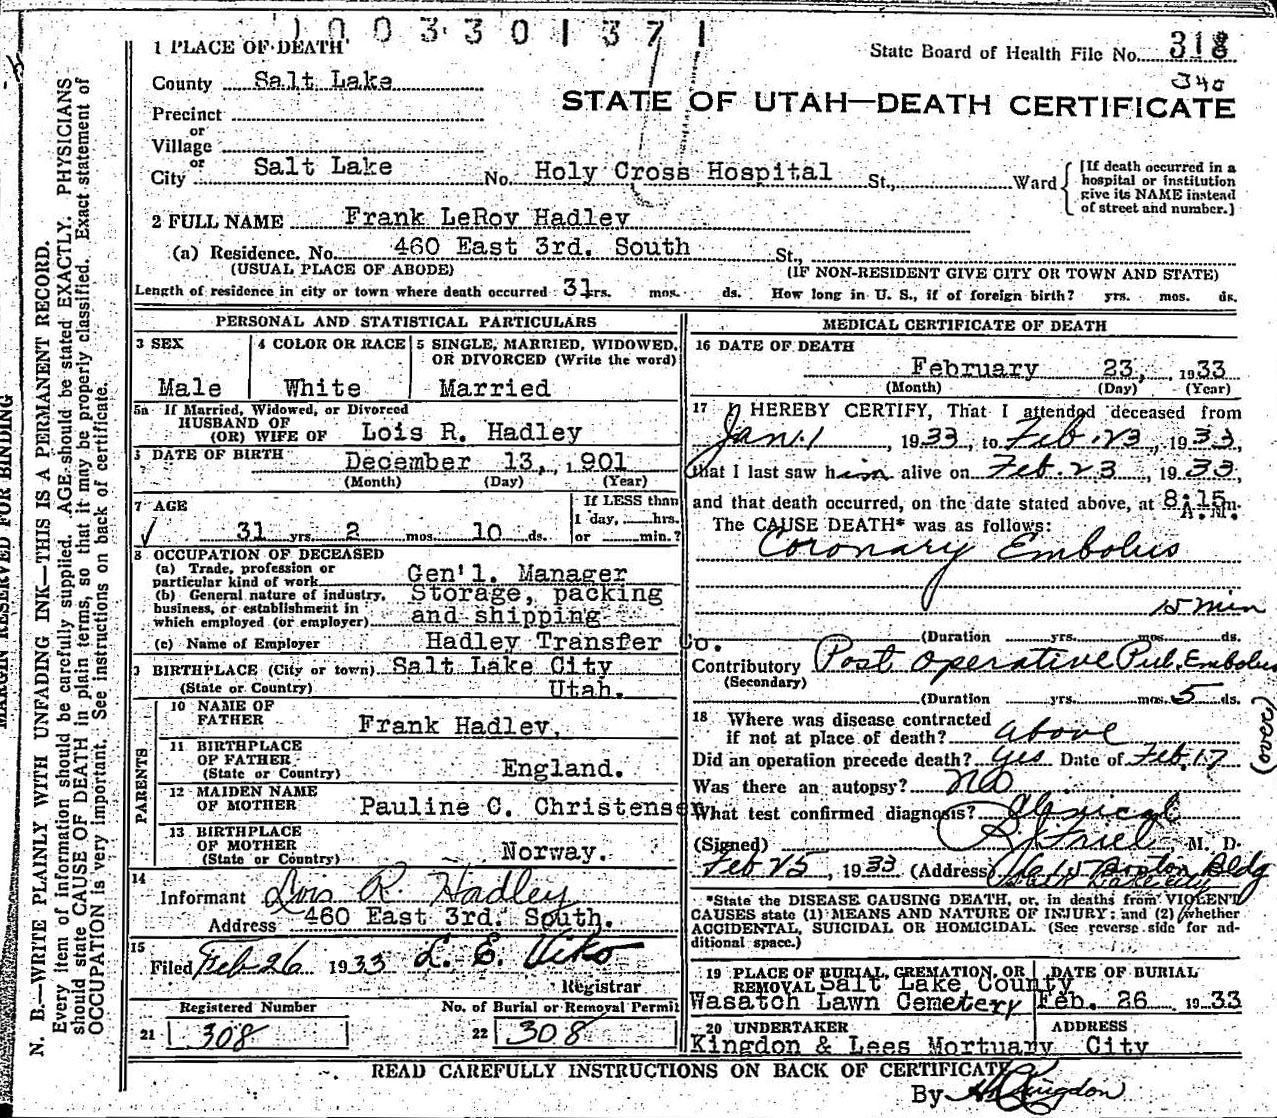 1003301371
1 PLACE OF DEATH
State Board of Health File No. 318
County Salt Lake
340
STATE OF UTAH—DEATH CERTIFICATE
Precinct
or
Village
or
City Salt Lake No. Holy Cross Hospital St., Ward
[If death occurred in a hospital or institution give its NAME instead of street and number.]
2 FULL NAME Frank LeRoy Hadley
(a) Residence. No. 460 East 3rd. South St.,
(USUAL PLACE OF ABODE) (IF NON-RESIDENT GIVE CITY OR TOWN AND STATE)
Length of residence in city or town where death occurred 31 yrs. mos. ds. How long in U. S., if of foreign birth? yrs. mos. ds.
PERSONAL AND STATISTICAL PARTICULARS
3 SEX
Male
4 COLOR OR RACE
White
5 SINGLE, MARRIED, WIDOWED,
OR DIVORCED (Write the word)
Married
5a If Married, Widowed, or Divorced
HUSBAND OF
(OR) WIFE OF Lois R. Hadley
6 DATE OF BIRTH
December 13, 1901
(Month) (Day) (Year)
7 AGE
31 yrs. 2 mos. 10 ds.
If LESS than
1 day, hrs.
or min.?
8 OCCUPATION OF DECEASED
(a) Trade, profession or
particular kind of work Gen'l. Manager
(b) General nature of industry,
business, or establishment in
which employed (or employer) Storage, packing
and shipping
(c) Name of Employer Hadley Transfer Co.
9 BIRTHPLACE (City or town) Salt Lake City
(State or Country) Utah.
PARENTS
10 NAME OF
FATHER Frank Hadley,
11 BIRTHPLACE
OF FATHER
(State or Country) England.
12 MAIDEN NAME
OF MOTHER Pauline C. Christensen
13 BIRTHPLACE
OF MOTHER
(State or Country) Norway.
14
Informant Lois R. Hadley
Address 460 East 3rd. South.
15
Filed Feb 26 1933 L. E. Viko
Registrar
Registered Number
21 308
No. of Burial or Removal Permit
22 308
MEDICAL CERTIFICATE OF DEATH
16 DATE OF DEATH
February 23, 1933
(Month) (Day) (Year)
17 I HEREBY CERTIFY, That I attended deceased from
Jan. 1, 1933, to Feb. 23, 1933,
that I last saw him alive on Feb. 23, 1933,
and that death occurred, on the date stated above, at 8:15 m.
A.M.
The CAUSE DEATH* was as follows:
Coronary Embolus
15 min
(Duration yrs. mos. ds.
Contributory Post operative Pul. Embolus
(Secondary)
(Duration yrs. mos. 5 ds.
18 Where was disease contracted
if not at place of death? above
Did an operation precede death? yes Date of Feb. 17
Was there an autopsy? No
What test confirmed diagnosis? Clinical
(Signed) M. D.
Feb 25, 1933 (Address) Boston Bldg
Salt Lake City
*State the DISEASE CAUSING DEATH, or, in deaths from VIOLENT
CAUSES state (1) MEANS AND NATURE OF INJURY; and (2) whether
ACCIDENTAL, SUICIDAL OR HOMICIDAL. (See reverse side for ad-
ditional space.)
19 PLACE OF BURIAL, CREMATION, OR
REMOVAL Salt Lake County
Wasatch Lawn Cemetery
DATE OF BURIAL
Feb. 26 1933
20 UNDERTAKER
Kingdon & Lees Mortuary
ADDRESS
City
READ CAREFULLY INSTRUCTIONS ON BACK OF CERTIFICATE
By Kingdon
MARGIN RESERVED FOR BINDING
N. B.—WRITE PLAINLY WITH UNFADING INK—THIS IS A PERMANENT RECORD.
Every item of information should be carefully supplied. AGE should be stated EXACTLY. PHYSICIANS
should state CAUSE OF DEATH in plain terms, so that it may be properly classified. Exact statement of
OCCUPATION is very important. See instructions on back of certificate.